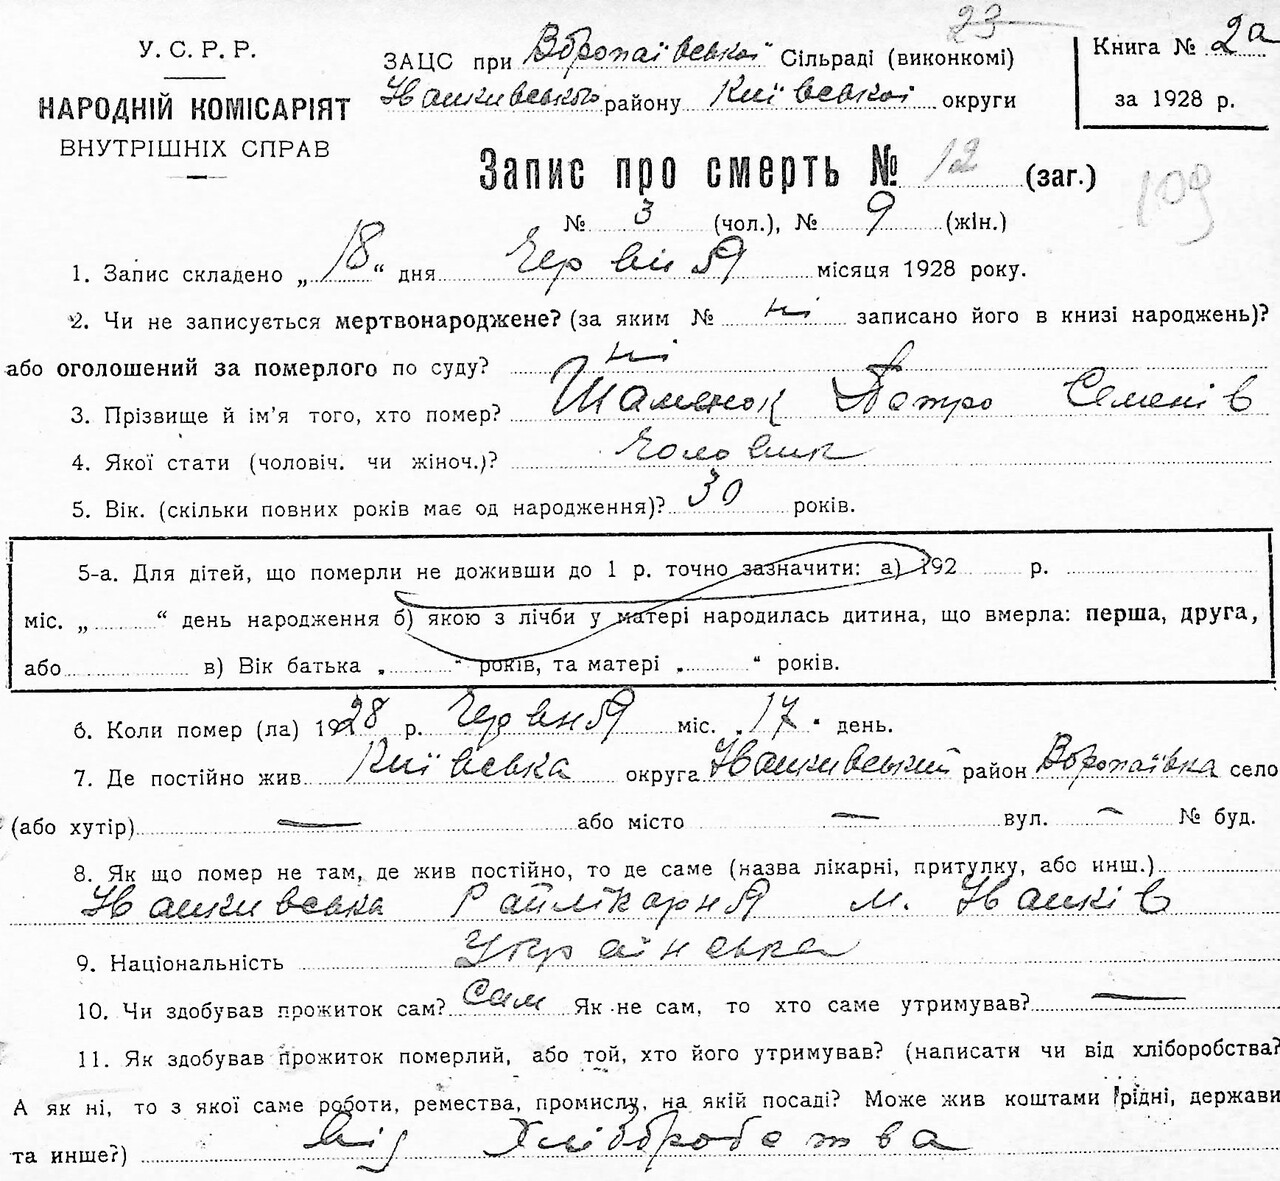 23
У. С. Р. Р.
НАРОДНІЙ КОМІСАРІЯТ
ВНУТРІШНІХ СПРАВ
ЗАЦС при Воропаївської Сільраді (виконкомі)
Іванківського району Київської округи
Книга № 2а
за 1928 р.
Запис про смерть № 12 (заг.)
109
№ 3 (чол.), № 9 (жін.)
1. Запис складено „ 18 “ дня Червня місяця 1928 року.
2. Чи не записується мертвонароджене? (за яким № ні записано його в книзі народжень)?
або оголошений за померлого по суду? ні
3. Прізвище й ім’я того, хто помер? Шаменок Петро Семенів
4. Якої стати (чоловіч. чи жіноч.)? Чоловик
5. Вік. (скільки повних років має од народження)? 30 років.
5-а. Для дітей, що померли не доживши до 1 р. точно зазначити: а) 192 р.
міс. „ “ день народження б) якою з лічби у матері народилась дитина, що вмерла: перша, друга,
або в) Вік батька „ “ років, та матері „ “ років.
6. Коли помер (ла) 1928 р. Червня міс. „ 17 “ день.
7. Де постійно жив Київська округа Іванкивський район Воропаївка село
(або хутір) — або місто — вул. — № буд.
8. Як що помер не там, де жив постійно, то де саме (назва лікарні, притулку, або инш.)
Іванкивська Райлікарня м. Іванків
9. Національність Українська
10. Чи здобував прожиток сам? Сам Як не сам, то хто саме утримував? —
11. Як здобував прожиток померлий, або той, хто його утримував? (написати чи від хліборобства?
А як ні, то з якої саме роботи, ремества, промислу, на якій посаді? Може жив коштами рідні, держави
та инше?) від Хліборобства